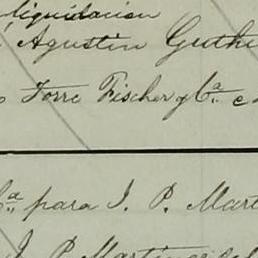 liquidacion
Agustin Guthe
Torre Fischer y Cª. e
Cª. para J. P. Mart
J. P. Martinez